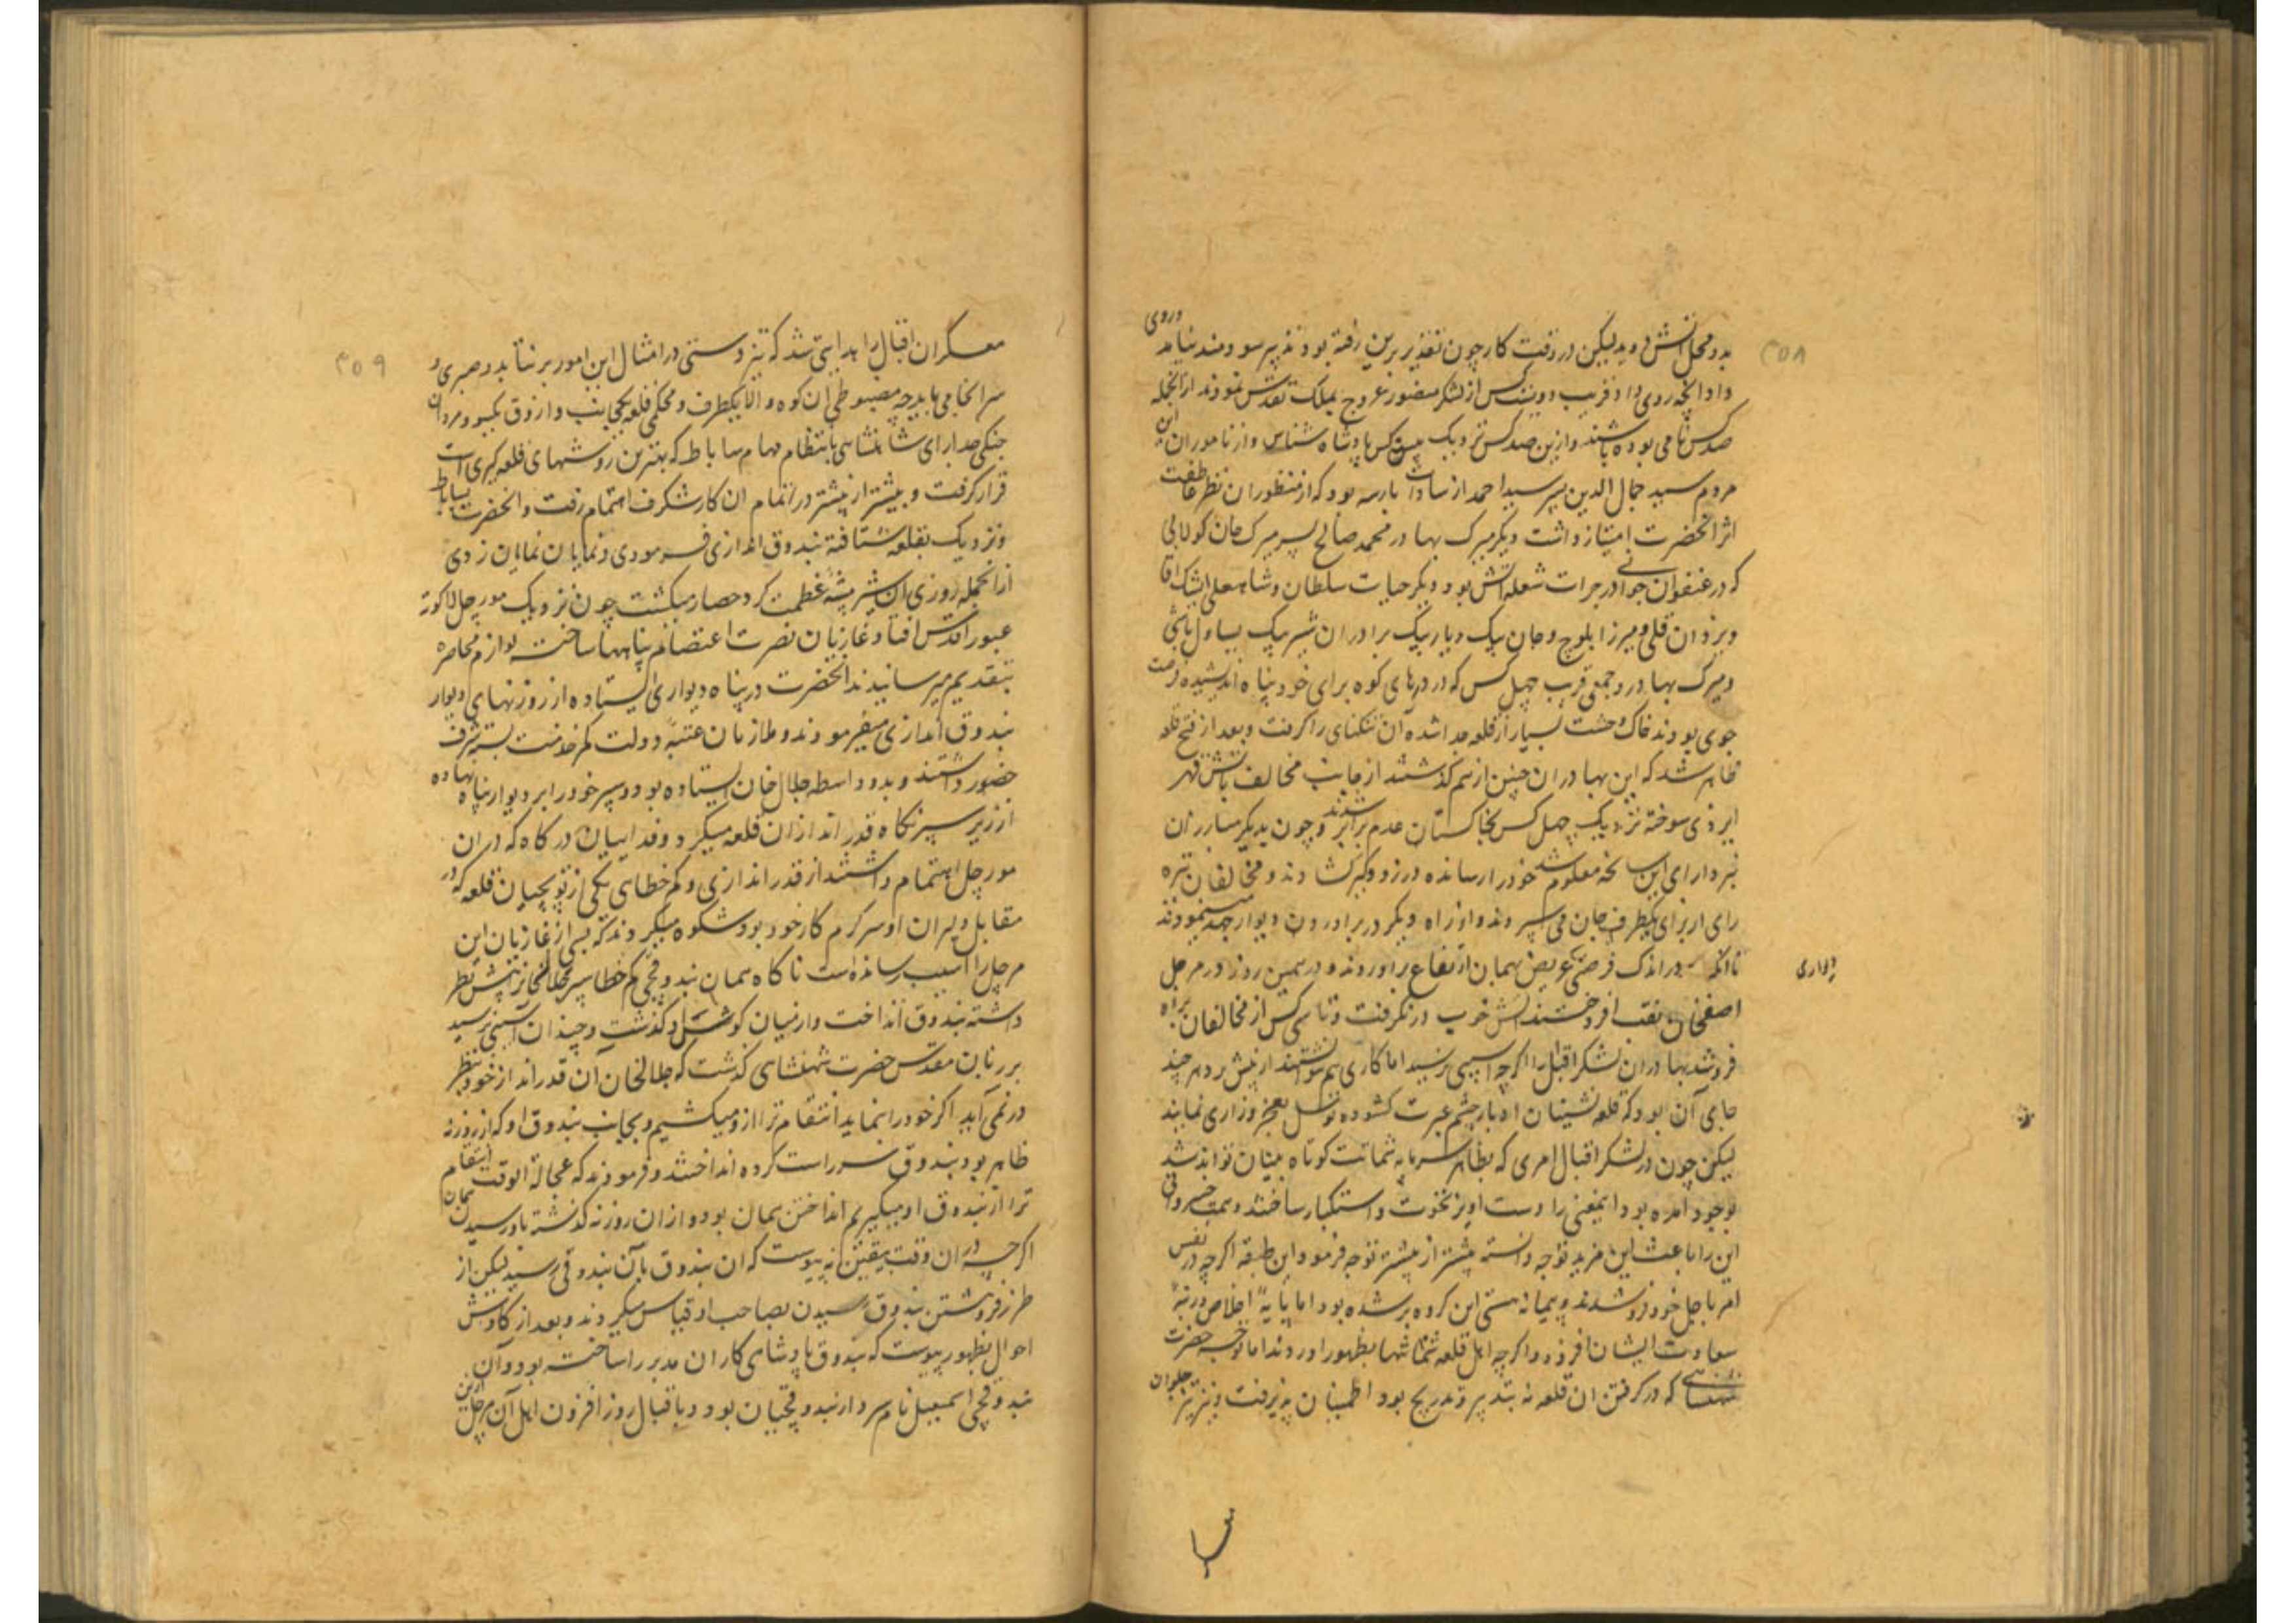 ۳۵۸
بدو محل آتش دوید لیکن در وقت کار چون تقدیر برین رفته بود تدبیر سودمند نیامد و روی
داد آنچه روی داد و قریب دویست کس از لشکر منصور عروج بملک تقدس نمودند از آنجمله
صد کس نامی بوده باشند و ازین صد کس نزدیک بیست کس پادشاه شناس و از ناموران این
مردم سید جمال الدین پسر سید احمد از سادات بارهه بود که از منظوران نظر عاطفت
اثر آنحضرت امتیاز داشت و دیگر میرک بهادر محمد صالح پسر میرک خان کولابی
که در عنفوان جوانی در جرات شعله آتش بود و دیگر حیات سلطان و شاه علی ایشک آقا
و یزدان قلی و میرزا بلوچ و جان بیک و یار بیک برادران شیر بیک یساول باشی
و میرک بهادر و جمعی قریب چهل کس که در درهای کوه برای خود پناه اندیشیده فرصت
جوی بودند خاک و خشت بسیار از قلعه جدا شده آن تنگنای را گرفت و بعد از فتح قلعه
ظاهر شد که این بهادران چنین از هم گذشتند از جانب مخالف بآتش قهر
ایزدی سوخته نزدیک چهل کس بخاکستان عدم برابر شدند و چون بدیگر مبارزان
نبرد آرای این سانحه معلوم شد خود را رسانده در زد و گیر کشادند و مخالفان تیره
رای از برای یکطرف جان می سپردند و از راه دیگر در برآوردن دیوار جهد مینمودند
تا آنکه در اندک فرصتی عریض بهمان ارتفاع برآوردند و در همین روز در مرچل
دیواری
اصفخان نقب افروختند آتش خوب در نگرفت و تا سی کس از مخالفان براه
فرو شد بهادران لشکر اقبال را اگرچه آسیبی نرسید اما کاری هم نتوانستند از پیش برد هرچند
جای آن بود که قلعه نشینان ادبار چشم عبرت کشوده توسل بعجز و زاری نمایند
لیکن چون در لشکر اقبال امری که بظاهر سرمایه شماتت کوتاه بینان تواند شد
بوجود آمده بود ایمعنی را دست آویز نخوت و استکبار ساختند و همت خسروانی
این را باعث این مزید توجه دانسته بیشتر از پیشتر توجه فرمود و این طبقه اگرچه در نفس
امر باجل خود فرو شدند و پیمانه هستی این گروه پر شده بود اما پایه اخلاص و رتبه
سعادت ایشان افزود و اگرچه اهل قلعه شماتتها بظهور آوردند اما توجه حضرت
شهنشاهی که در گرفتن آن قلعه نه بتدبیر و تدریج بود اطمینان پذیرفت و نیز تیز جلوان
۳۵۹
معسکر اقبال را هدایتی شد که تیزدستی در امثال این امور بر نتابد و صبری و
سرانجامی باید چه مضبوطی آن کوه والا یکطرف و محکمی قلعه یکجانب و آزوق یکسو و مردان
جنگی جدا رای شاهنشاهی بانتظام مهام ساباط که بهترین روشهای قلعه گیری است
قرار گرفت و بیشتر از پیشتر در اتمام آن کار شگرف اهتمام رفت و آنحضرت بساباط
و نزدیک بقلعه شتافته بندوق اندازی فرمودی و نمایان نمایان زدی
از آنجمله روزی آن شیر بیشه عظمت گرد حصار میگشت چون نزدیک مورچل لاکوته
عبور اقدس افتاد غازیان نصرت اعتصام پناهها ساخته لوازم محاصره
بتقدیم میرسانیدند آنحضرت در پناه دیواری ایستاده از روزنهای دیوار
بندوق اندازی میفرمودند و ملازمان عتبه دولت کم خدمت بسته شرف
حضور داشتند و بدو واسطه جلال خان ایستاده بود و سپر خود را بر دیوار پناه نهاده
از زیر سپر نگاه قدر اندازان قلعه میکرد و فدائیان درگاه که در آن
مورچل اهتمام داشتند از قدر اندازی و کم خطای یکی از توپچیان قلعه که در
مقابل دلیران او سرگرم کار خود بود شکوه میکردند که بسی از غازیان این
مرچل را آسیب رسانده است ناگاه همان بندوقچی کم خطا سپر جلال خان را پیش نظر
داشته بندوق انداخت و از میان گوشش گذشت و چندان آسیبی نرسید
بر زبان مقدس حضرت شهنشاهی گذشت که جلالخان آن قدر انداز خود بنظر
در نمی آید اگر خود را بنماید انتقام ترا ازو میکشیم و بجانب بندوق او که از روزنه
ظاهر بود بندوق سر راست کرده انداختند و فرمودند که عجالة الوقت انتقام
ترا از بندوق او میگیریم انداختن همان بود و از آن روزنه گذشته باو رسیدن همان
اگرچه در آن وقت بیقین نه پیوست که آن بندوق بآن بندوقی رسید لیکن از
طرز فروهشتن بندوق رسیدن بصاحب او قیاس میکردند و بعد از کاوش
احوال بظهور پیوست که بندوق پادشاهی کار آن مدبر را ساخته بود و آن
بندوقچی اسمعیل نام سردار بندوقچیان بود و باقبال روز افزون اهل آن مرچل ازین